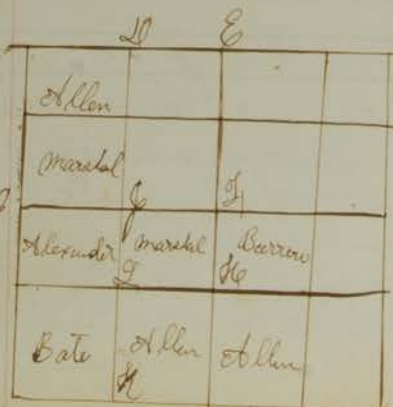 D E
Allen
Marshal
Alexander Marshal Burrow
G
Bate Allen Allen